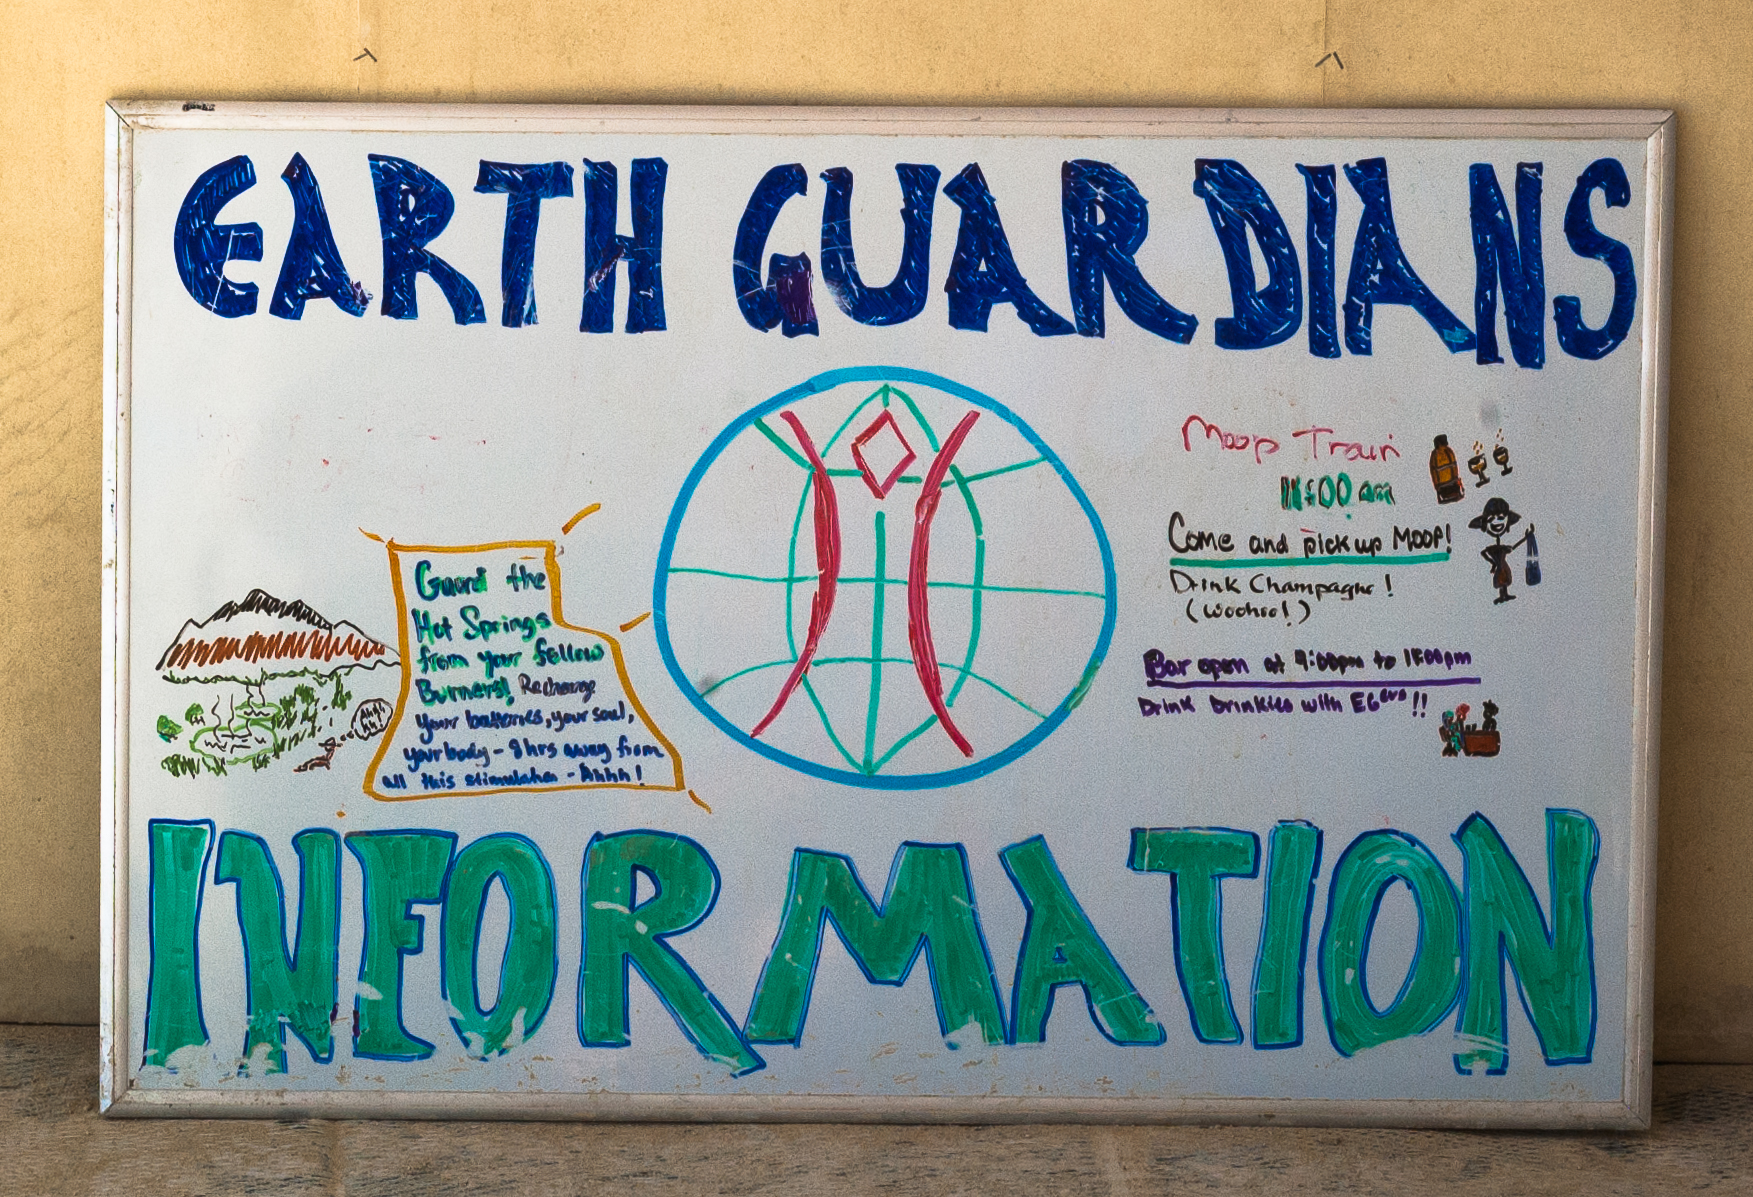 EARTH GUARDIANS
Moop Train
11:00 am
Come and pick up MOOP!
Drink Champagne!
(Woohoo!)
Guard the
Hot Springs
from your fellow
Burners! Recharge
your batteries, your soul,
your body - 8 hrs away from
all this stimulation - Ahhh!
Bar open at 9:00pm to 11:00pm
Drink Drinkies with EG ers!!
INFORMATION